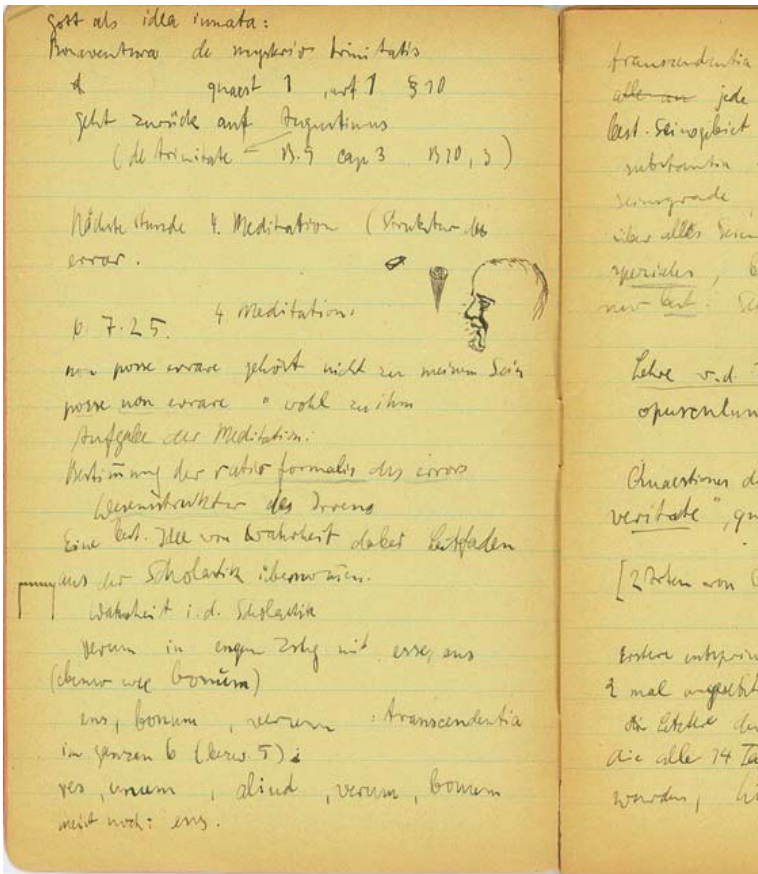 Gott als idea innata:
Bonaventura de mysterio trinitatis
quaest 1 art 1 § 10
geht zurück auf Augustinus
(de trinitate B. 9 cap 3 B 10, 3)
Nächste Stunde 4. Meditation (Struktur des
error.
7.25. 4 Meditation
non posse errare gehört nicht zu meinem Sein
posse non errare " wohl zu ihm
Aufgabe der Meditation:
Bestimmung der ratio formalis des errors
Wesensstruktur des Irrens
Eine best. Idee von Wahrheit dabei Leitfaden
aus der Scholastik übernommen.
Wahrheit i. d. Scholastik
verum in engem Zshg mit esse, ens
(ebenso wie bonum)
ens, bonum, verum : transcendentia
im ganzen 6 (bezw. 5):
res, unum, aliud, verum, bonum
meist noch: ens.
transcendentia
allen an jede
best. Seinsgebiet
substantia
Seinsgrade
über alles Sein
spezielles,
nur best.
Lehre v. d.
opusculum
Quaestiones de
veritate",
[2 Arten von
Erstere entsprin
2 mal angesetzt
die letztere
die alle 14 Ta
wurden,